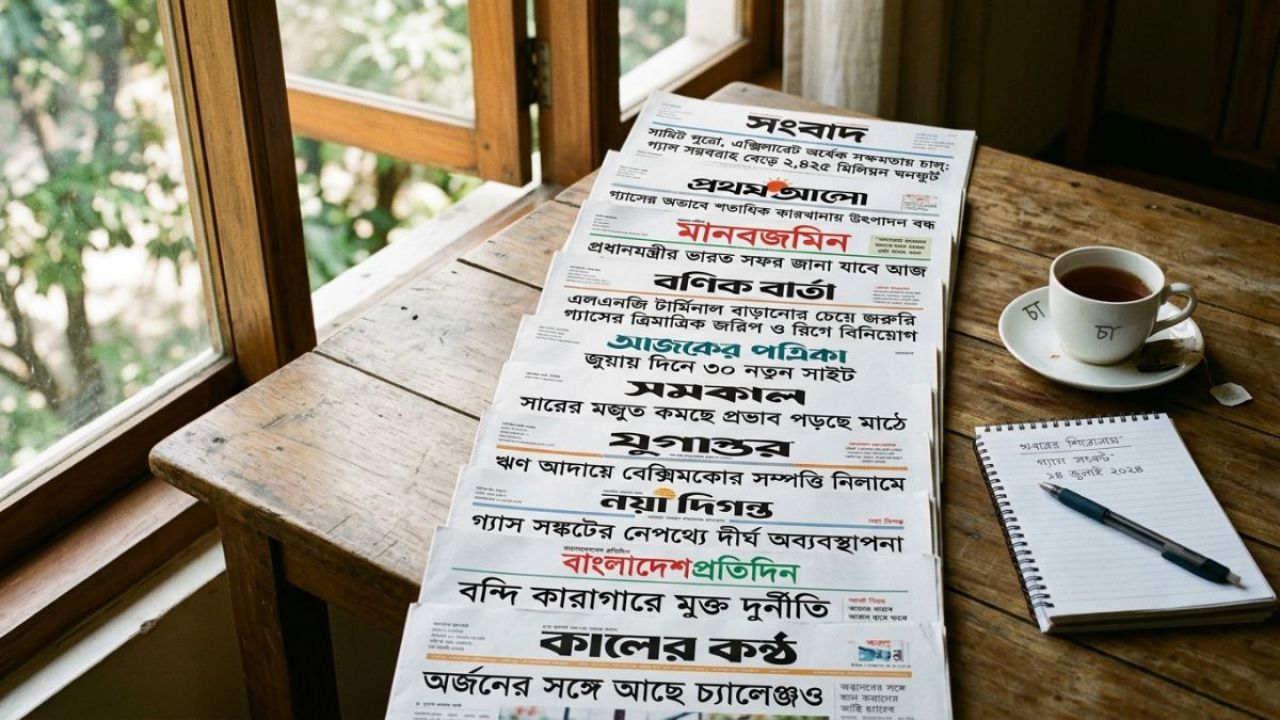 সংবাদ
সামিট পুরো, এক্সিলারেট অর্ধেক সক্ষমতায় চালু:
গ্যাস সরবরাহ বেড়ে ২,৪২৫ মিলিয়ন ঘনফুট
প্রথম আলো
গ্যাসের অভাবে শতাধিক কারখানায় উৎপাদন বন্ধ
মানবজমিন
প্রধানমন্ত্রীর ভারত সফর জানা যাবে আজ
বণিক বার্তা
এলএনজি টার্মিনাল বাড়ানোর চেয়ে জরুরি
গ্যাসের ত্রিমাত্রিক জরিপ ও রিগে বিনিয়োগ
আজকের পত্রিকা
জুয়ায় দিনে ৩০ নতুন সাইট
সমকাল
সারের মজুত কমছে প্রভাব পড়ছে মাঠে
যুগান্তর
ঋণ আদায়ে বেক্সিমকোর সম্পত্তি নিলামে
নয়া দিগন্ত
গ্যাস সঙ্কটের নেপথ্যে দীর্ঘ অব্যবস্থাপনা
বাংলাদেশ প্রতিদিন
বন্দি কারাগারে মুক্ত দুর্নীতি
কালের কণ্ঠ
অর্জনের সঙ্গে আছে চ্যালেঞ্জও
চা
চা
খবরের শিরোনাম"
গ্যাস সংকট"
১৪ জুলাই ২০২৪